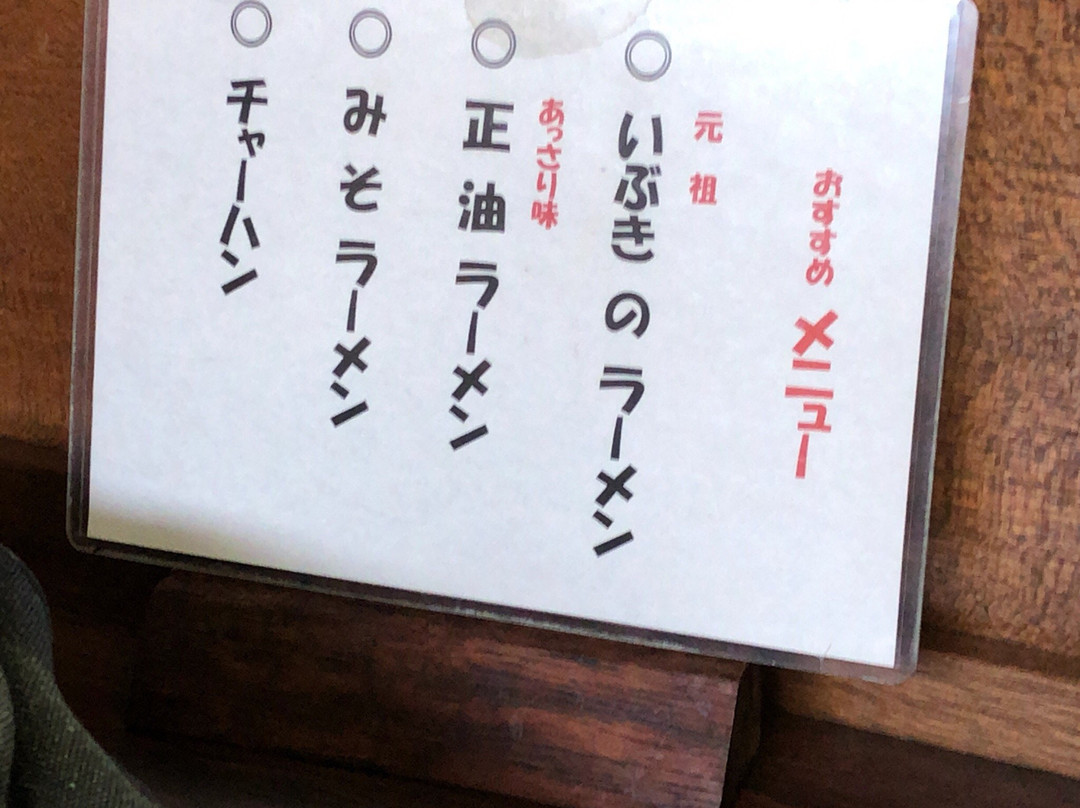 おすすめ メニュー
元祖
○ いぶきのラーメン
あっさり味
○ 正油ラーメン
○ みそラーメン
○ チャーハン